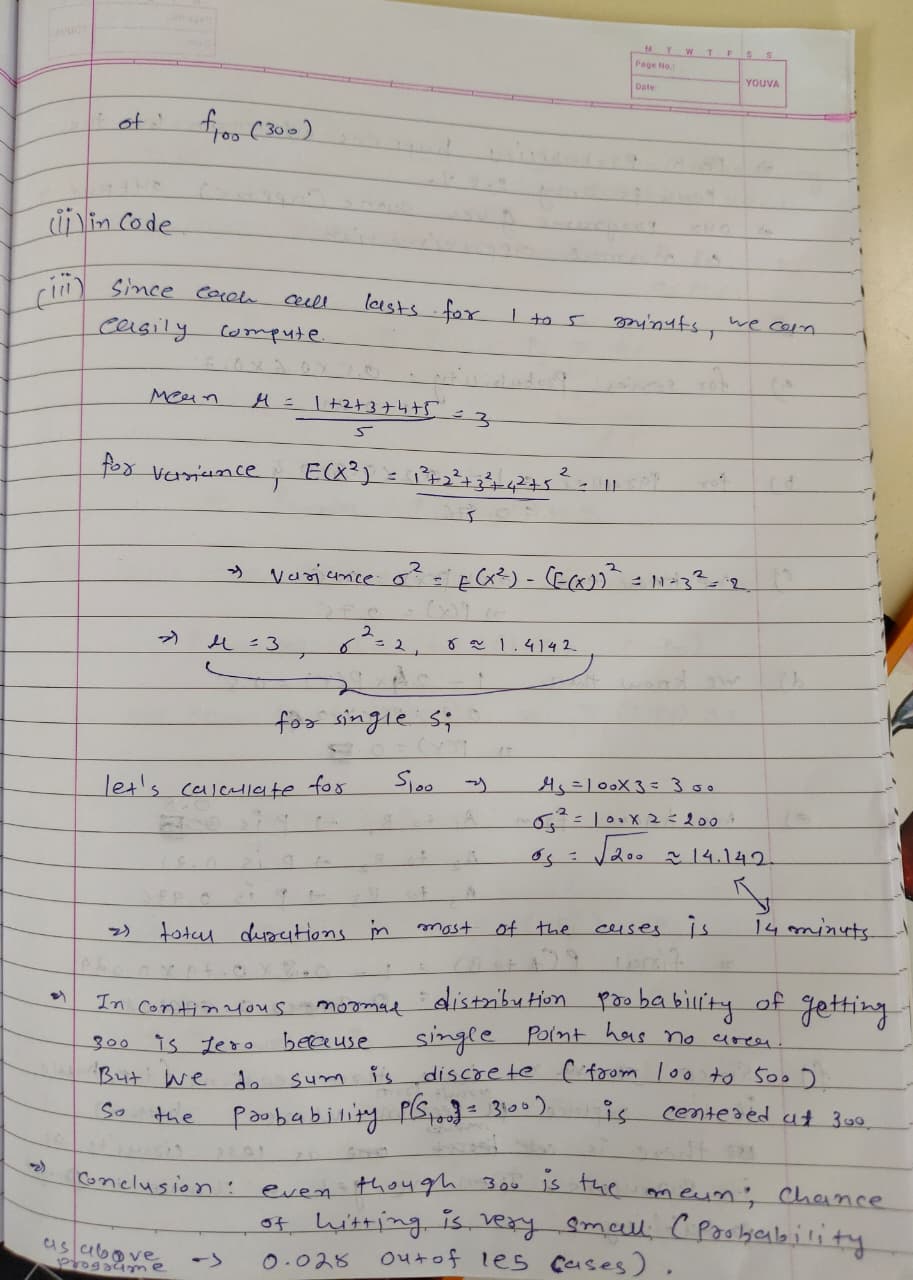 M T W T F S S
Page No.:
Date:
YOUVA
of f₁₀₀(300)
(ii) in code
(iii) Since each call lasts for 1 to 5 minuts, we can
easily compute.
Mean μ = (1+2+3+4+5)/5 = 3
for variance, E(X²) = (1²+2²+3²+4²+5²)/5 = 11
⇒ variance σ² = E(X²) - (E(X))² = 11-3² = 2
⇒ μ = 3, σ² = 2, σ ≈ 1.4142
for single Sᵢ
let's calculate for S₁₀₀ ⇒ μₛ = 100×3 = 300
σₛ² = 100×2 = 200
σₛ = √200 ≈ 14.142
⇒ total durations in most of the cases is 14 minuts
⇒ In continuous normal distribution probability of getting
300 is zero because single point has no area.
But we do sum is discrete (from 100 to 500)
So the probability P(S₁₀₀ = 300) is centered at 300
⇒ Conclusion: even though 300 is the mean, chance
of hitting is very small (Probability
as above
programe → 0.028 out of les cases).